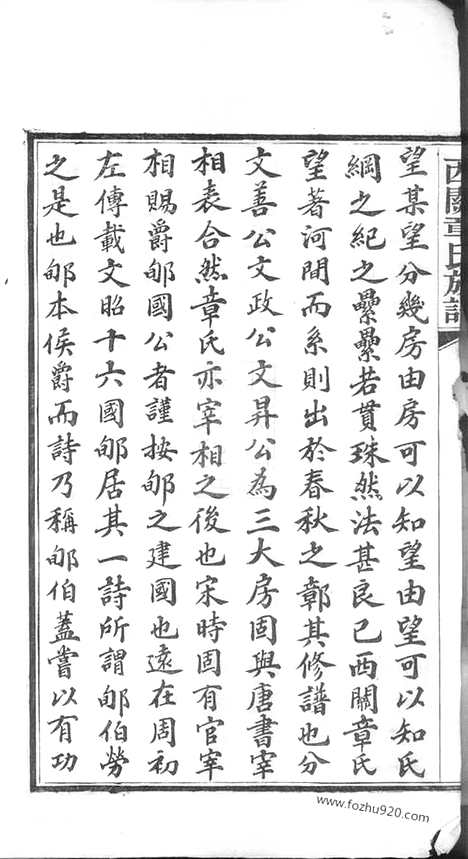 西關章氏族譜
望某望分幾房由房可以知望由望可以知氏
綱之紀之纍纍若貫珠然法甚良已西關章氏
望著河間而系則出於春秋之鄣其修譜也分
文善公文政公文昇公為三大房固與唐書宰
相表合然章氏亦宰相之後也宋時固有官宰
相賜爵郇國公者謹按郇之建國也遠在周初
左傳載文昭十六國郇居其一詩所謂郇伯勞
之是也郇本侯爵而詩乃稱郇伯蓋嘗以有功
www.fozhu920.com